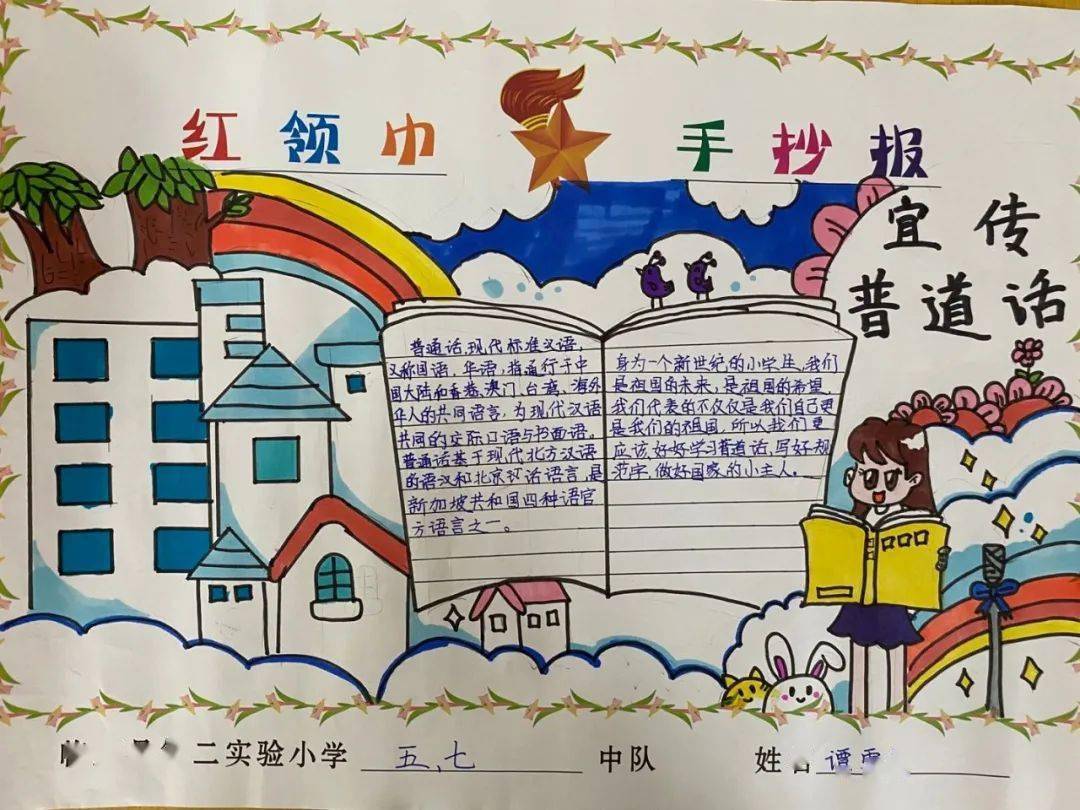 红领巾 手抄报
宣传
普道话
普通话,现代标准汉语,
又称国语,华语,指通行于中
国大陆和香港、澳门、台湾、海外
华人的共同语言,为现代汉语
共同的交际口语与书面语。
普通话基于现代北方汉语
的语汉和北京话语言,是
新加坡共和国四种语官
方语言之一。
身为一个新世纪的小学生,我们
是祖国的未来,是祖国的希望,
我们代表的不仅仅是我们自己更
是我们的祖国,所以我们更
应该好好学习普道话,写好规
范字,做好国家的小主人。
二实验小学 五、七 中队 姓 谭